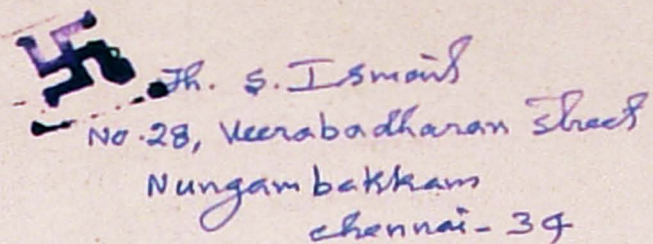 Th. S. Ismail
No.28, Veerabadharan Street
Nungambakkam
Chennai-34